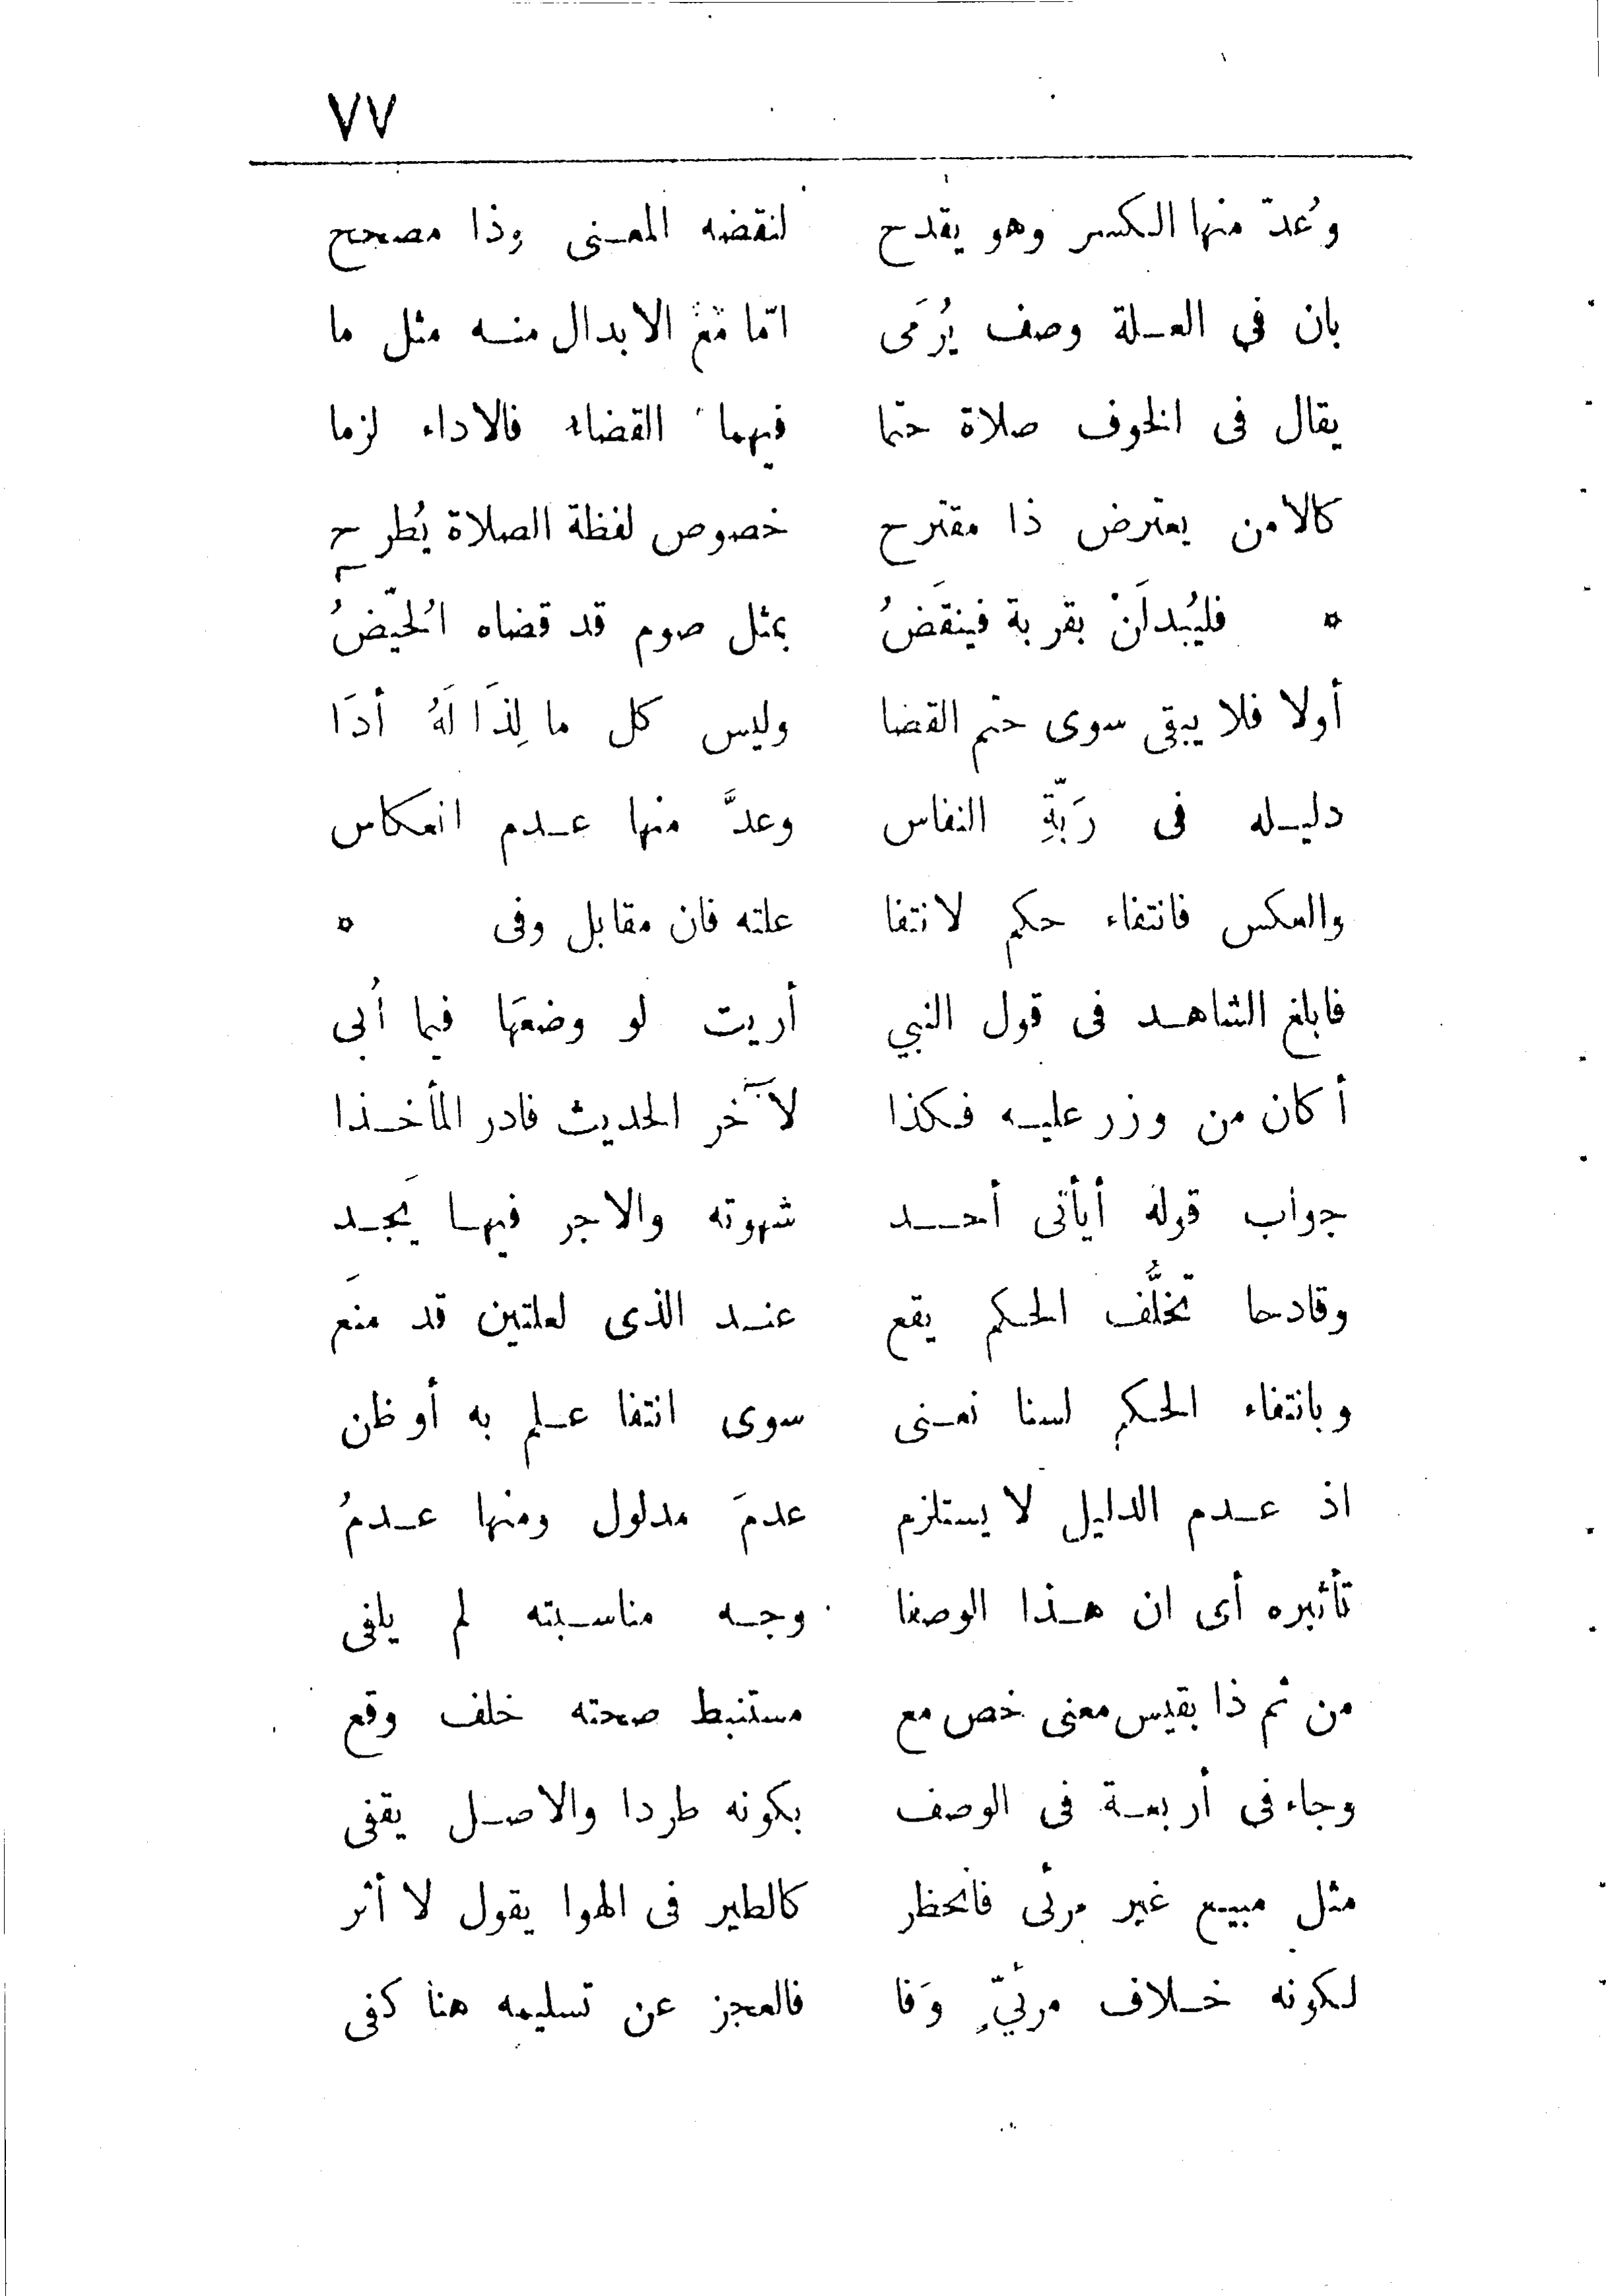 ٧٧
وعُدّ منها الكسر وهو يقدح لنقضه المعنى وذا مصحح
بان فى العلة وصف يُرمَى امّا مَعَ الابدال منه مثل ما
يقال فى الخوف صلاة حتما فيهما القضاء فالاداء لزما
كالامن يعترض ذا مقترح خصوص لفظة الصلاة يُطرح
¤ فليُبدلَنْ بقربة فينقَضُ بمثل صوم قد قضاه الحُيّضُ
أولا فلا يبقى سوى حتم القضا وليس كل ما لِذَا لَهُ أدَا
دليله فى رَبّةِ النفاس وعدَّ منها عدم انعكاس
والعكس فانتفاء حكم لانتفا علته فان مقابل وفى ¤
فابلغ الشاهد فى قول النبي أريت لو وضعَها فيما أُبى
أكان من وزر عليه فكذا لآخر الحديث فادر المأخذا
جواب قوله أيأتى أحد شهوته والاجر فيها يَجد
وقادحا تخلُّف الحكم يقع عند الذى لعلتين قد منَع
وبانتفاء الحكم لسنا نعنى سوى انتفا علم به أو ظن
اذ عدم الدليل لا يستلزم عدمَ مدلول ومنها عدمُ
تأثيره أى ان هذا الوصفا وجه مناسبته لم يلفى
من ثم ذا بقيس معنى خص مع مستنبط صحته خلف وقع
وجاء فى أربعة فى الوصف بكونه طردا والاصل يقفى
مثل مبيع غير مرئى فانحظر كالطير فى الهوا يقول لا أثر
لكونه خلاف مرئيّ وَفا فالعجز عن تسليمه هنا كفى